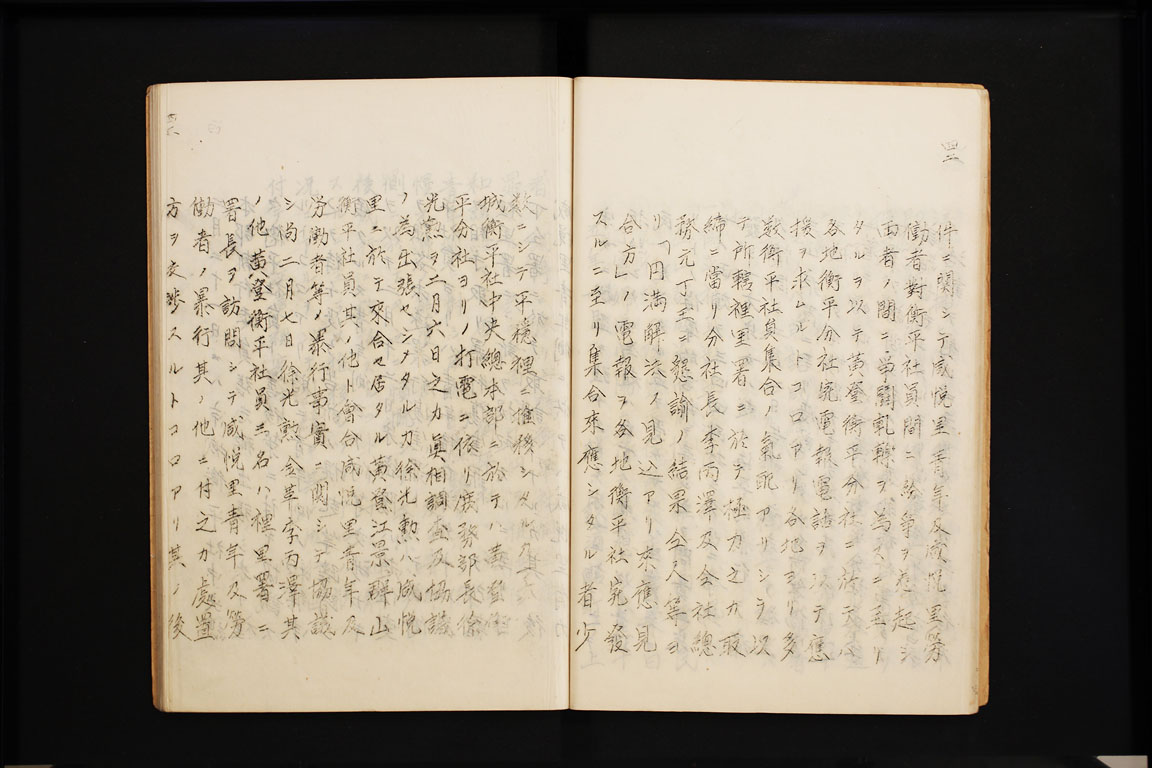 件ニ関シテ咸悦里青年及咸悦里労
働者對衡平社員間ニ紛争ヲ惹起シ
両者ノ間ニ争闘軋轢ヲ為スニ至リ
タルヲ以テ黄登衡平分社ニ於テハ
各地衡平分社宛電報電話ヲ以テ應
援ヲ求ムルトコロアリ各地ヨリ多
数衡平社員集合ノ氣配アリシヲ以
テ所轄裡里署ニ於テ極力之カ取
締ニ當リ分社長李丙澤及仝社總
務元丁壬ニ懇諭ノ結果仝人等ヨ
リ「円満解決ノ見込アリ來應見
合方」ノ電報ヲ各地衡平社宛發
スルニ至リ集合來應シタル者少
数ニシテ平穏裡ニ推移シタルカ京
城衡平社中央總本部ニ於テハ黄登衡
平分社ヨリノ打電ニ依リ庶務部長徐
光勲ヲ二月六日之カ真相調査及協議
ノ為出張セシメタルカ徐光勲ハ咸悦
里ニ於テ來合セ居タル黄登江景群山
衡平社員其ノ他ト會合咸悦里青年及
労働者等ノ暴行事實ニ関シテ協議
シ尚二月七日徐光勲仝革李丙澤其
ノ他黄登衡平社員三名ハ裡里署ニ
署長ヲ訪問シテ咸悦里青年及労
働者ノ暴行其ノ他ニ付之カ處置
方ヲ交渉スルトコロアリ其ノ後